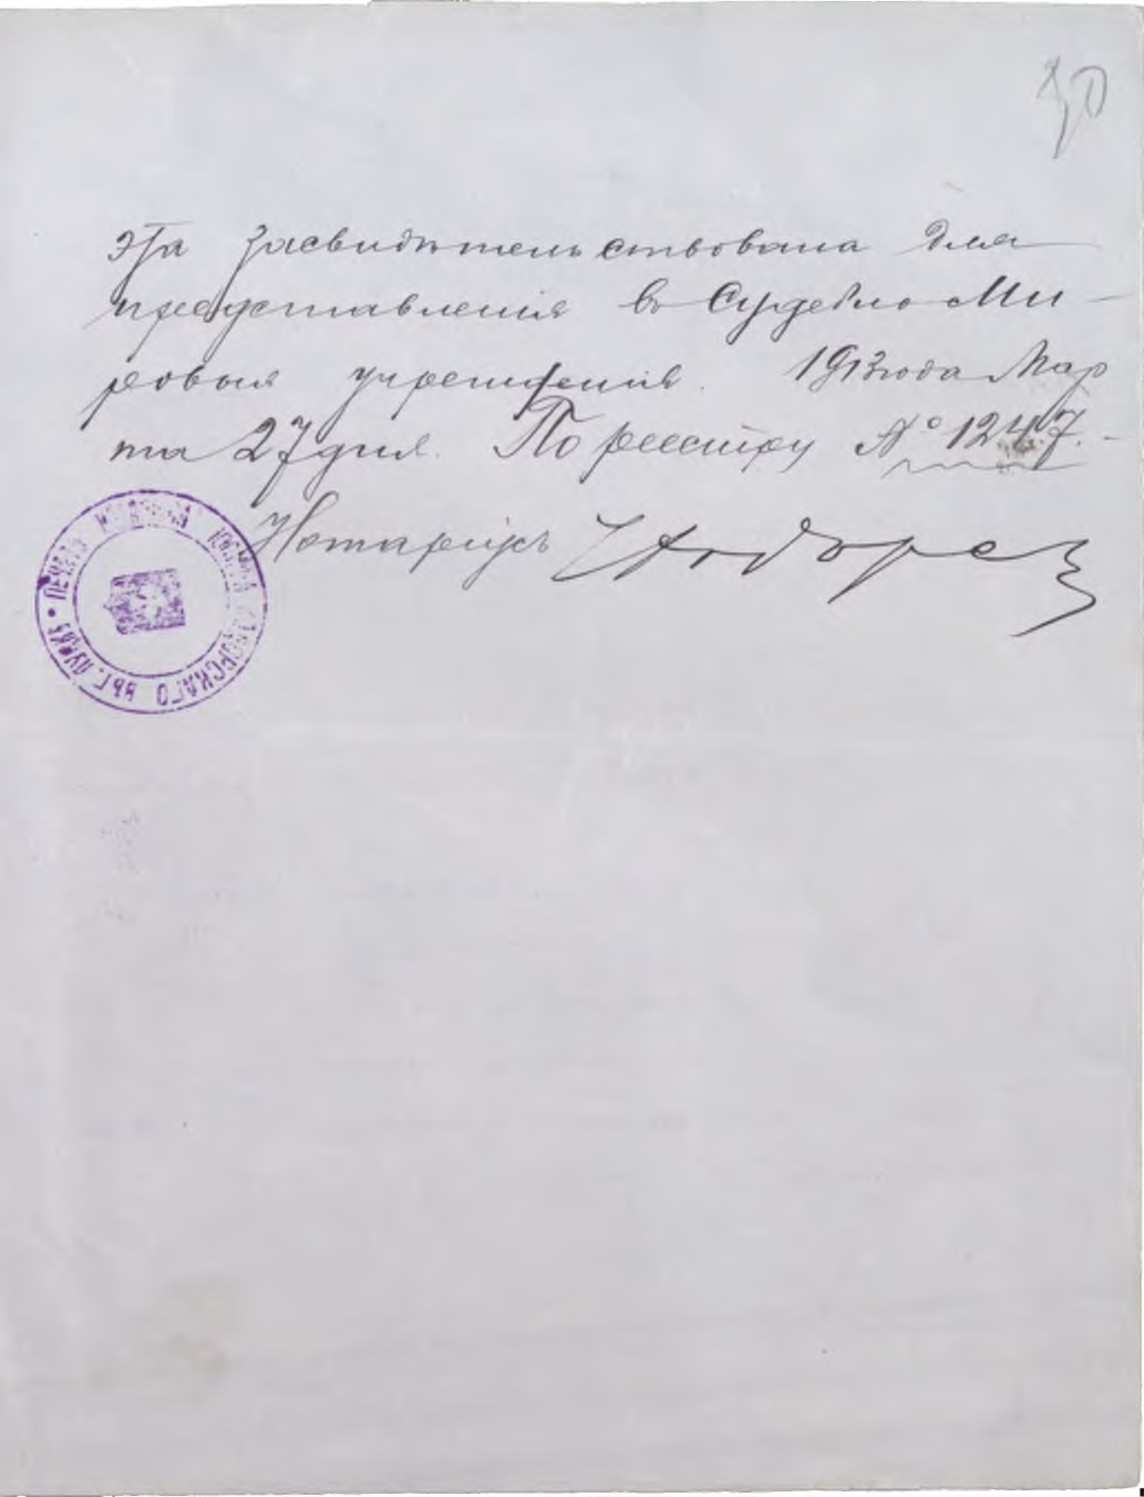 эта засвидѣтельствована для
представленiя въ Судебно Ми-
ровыя учрежденiя. 1913 года Мар
та 27 дня. По реестру № 1247.-
Нотарiусъ
ПЕЧАТЬ